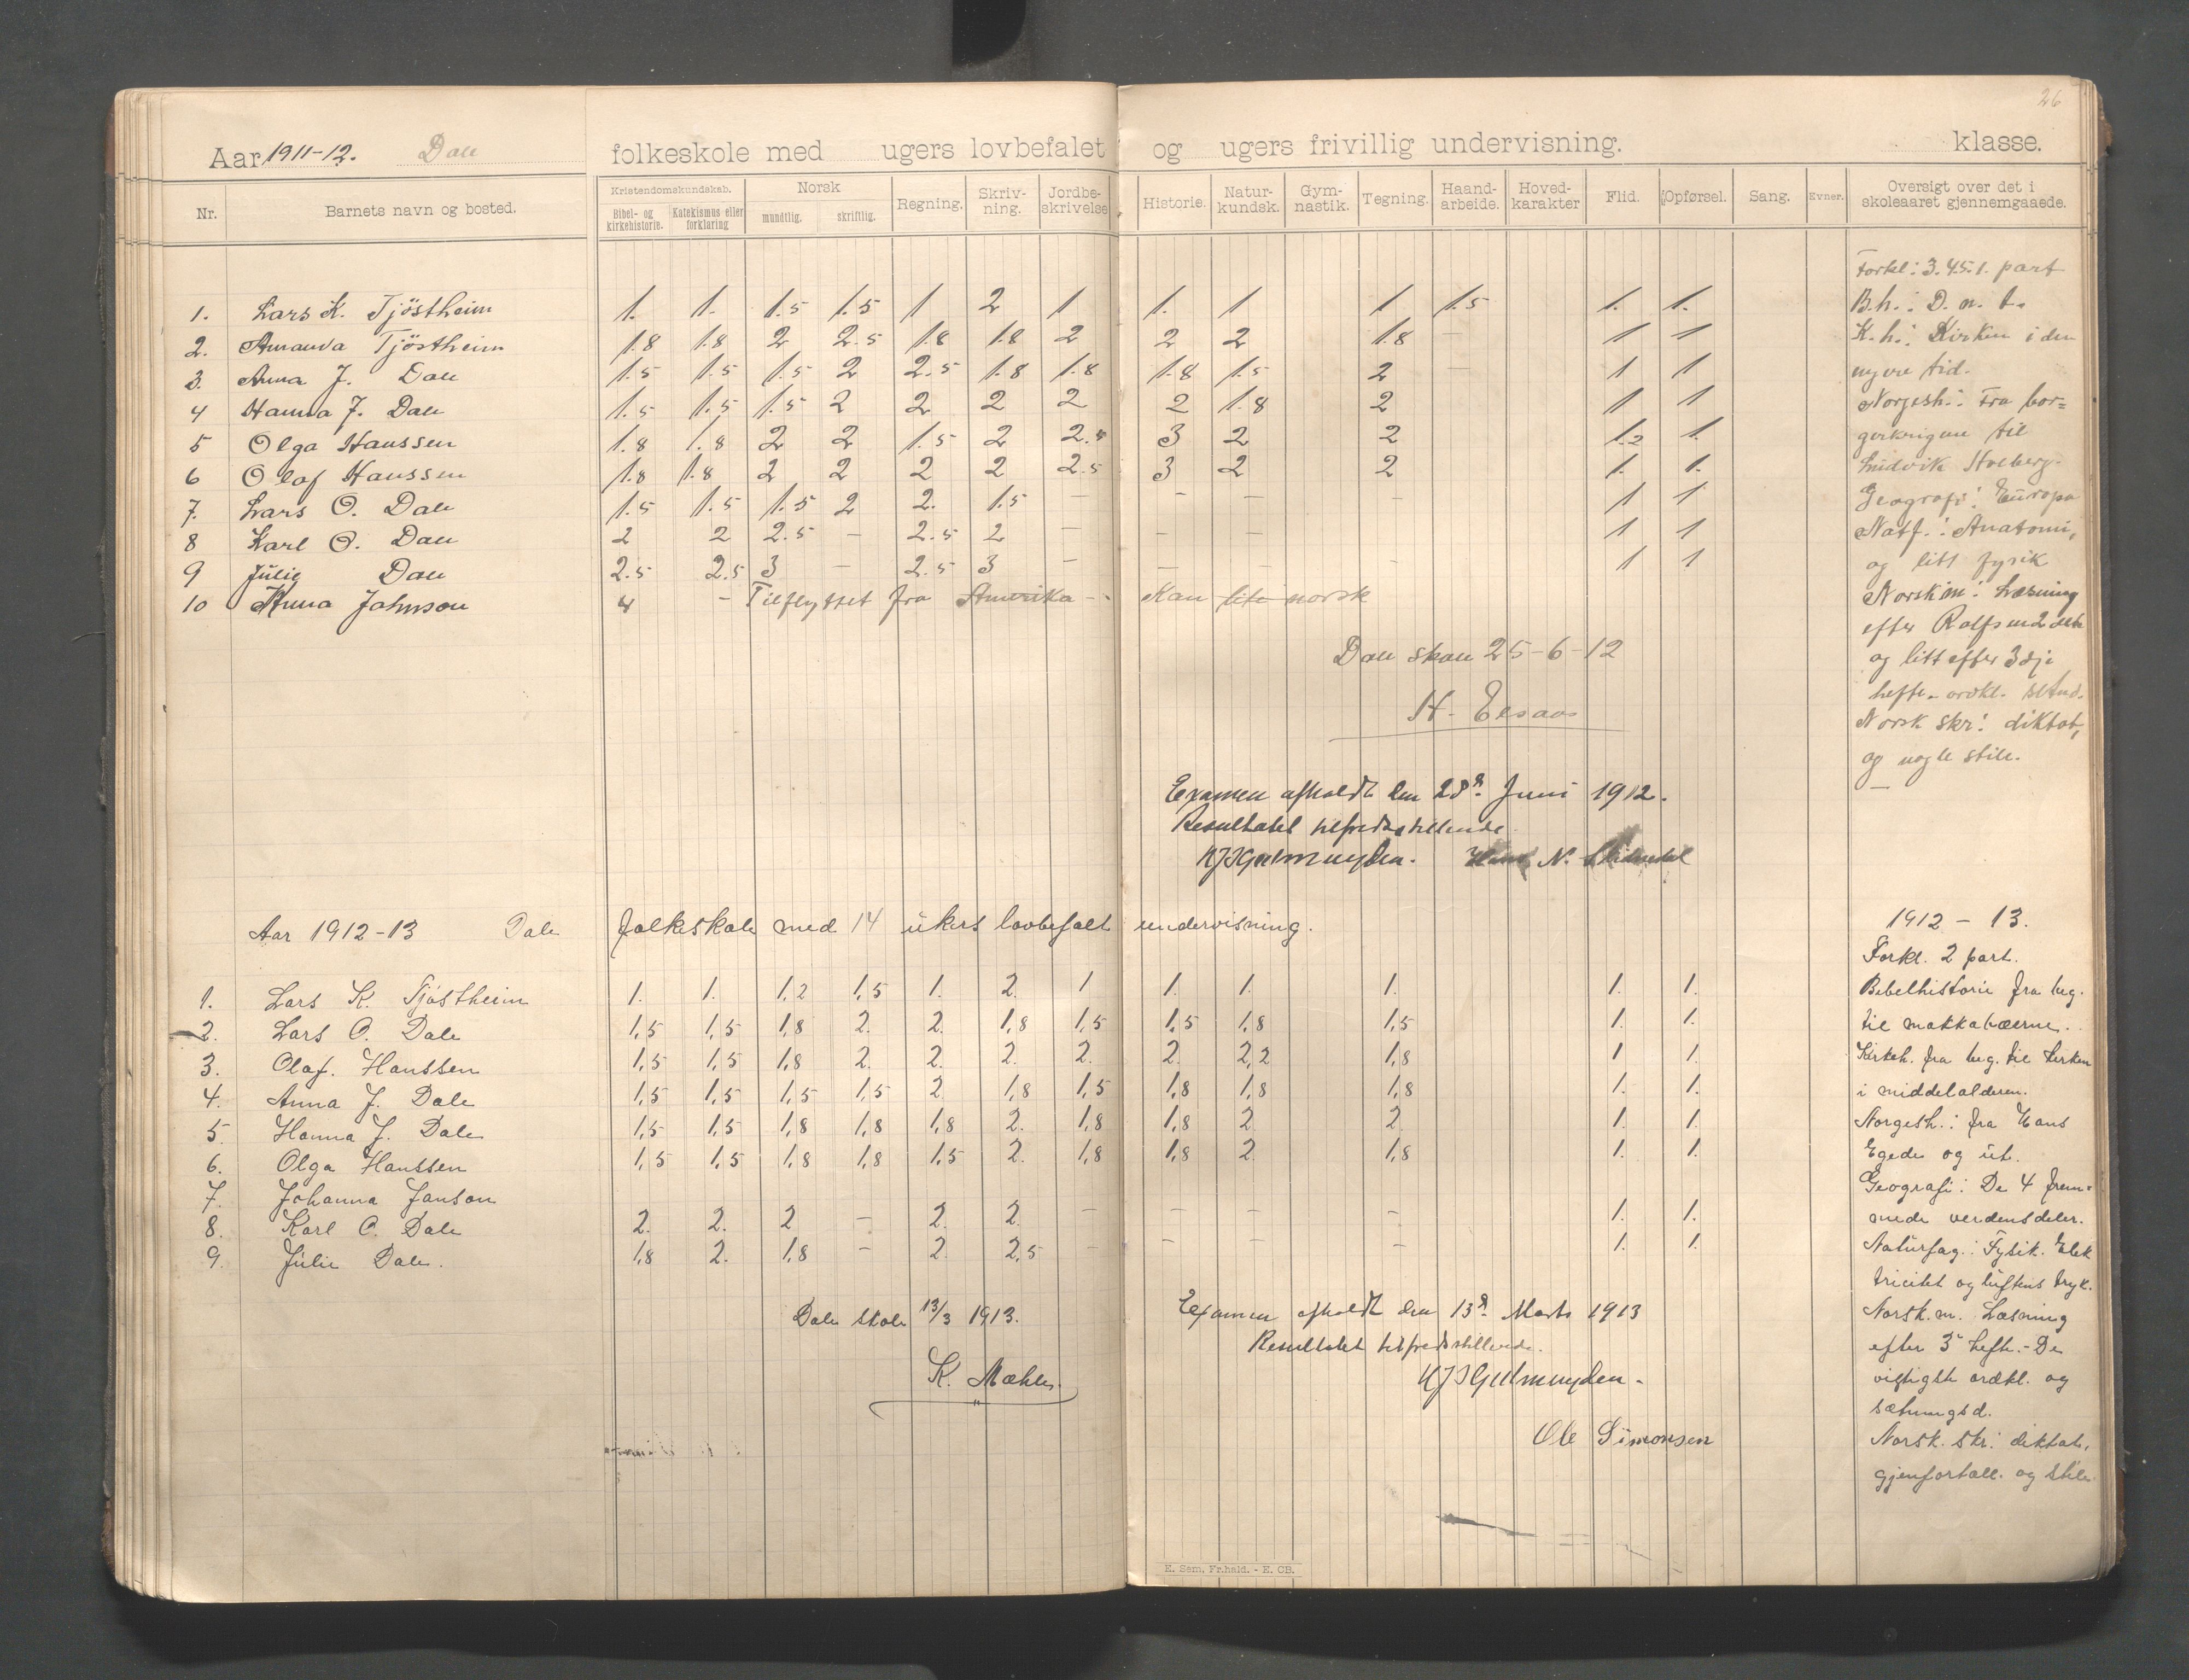 26
Aar 1911-12. Dale folkeskole med ugers lovbefalet og ugers frivillig undervisning. klasse.
Nr. Barnets navn og bosted. Kristendomskundskab. Bibel- og kirkehistorie. Katekismus eller forklaring Norsk mundtlig. skriftlig. Regning. Skriv-ning. Jordbe-skrivelse Historie. Natur-kundsk. Gym-nastik. Tegning. Haand-arbeide. Hoved-karakter Flid. Opførsel. Sang. Evner. Oversigt over det i skoleaaret gjennemgaaede.
1. Lars K. Tjöstheim 1. 1. 1.5 1.5 1 2 1 1. 1 1 1.5 1. 1.
2. Amanda Tjöstheim 1.8 1.8 2 2.5 1.8 1.8 2 2 2 1.8 — 1 1
3. Anna J. Dale 1.5 1.5 1.5 2 2.5 1.8 1.8 1.8 1.5 2 — 1 1
4 Hanna J. Dale 1.5 1.5 1.5 2 2 2 2 2 1.8 2 1 1
5 Olga Hanssen 1.8 1.8 2 2 1.5 2 2.5 3 2 2 1.2 1.
6 Olaf Hanssen 1.8 1.8 2 2 2 2 2.5 3 2 2 1. 1.
7. Lars O. Dale 1.5 1.5 1.5 2 2. 1.5 — - — - 1 1
8 Karl O. Dale 2 2 2.5 — 2.5 2 — — — - 1 1
9 Julie Dale 2.5 2.5 3 — 2.5 3 — — - - 1 1
10 Anna Johnson 4 - Tilflyttet fra Amerika - Kan lite norsk
Forkl: 3.4.5.1. part
B.h.: D. n. t.
K.h.: Kirken i den
nyere tid.
Norgesh.: Fra bor=
gerkrigene til
Ludvik Holberg.
Geografi: Europa
Natf.: Anatomi,
og litt fysik
Norsk m: Læsning
efter Rolfsen 2det
og litt efter 3dje
hefte.
Norsk skr: diktat,
og nogle stile.
Dale skole 25-6-12
Examen afholdt den 28d. Juni 1912.
Resultatet tilfredsstillende.
Aar 1912-13 Dale folkeskole med 14 ukers lovbefalt undervisning.
1. Lars K. Tjøstheim 1. 1. 1,2 1,5 1. 2. 1 1. 1. 1. 1. 1.
2. Lars O. Dale 1,5 1,5 1,8 2. 2. 1,8 1,5 1,5 1,8 1,5 1. 1.
3. Olaf. Hanssen 1,5 1,5 1,8 2. 2. 2. 2. 2. 2,2 1,8 1 1.
4. Anna J. Dale 1,5 1,5 1,5 1,5 2 1,8 1,5 1,8 1,8 1,8 1. 1.
5. Hanna J. Dale 1,5 1,5 1,8 1,8 1,8 2. 1,8 1,8 2 2. 1. 1.
6. Olga Hanssen 1,5 1,5 1,8 1,8 1,5 2. 1,8 1,8 2. 1,8 1. 1.
7. Johanna Janson
8. Karl O. Dale 2. 2. 2 — 2. 2. — — — — 1. 1.
9. Julie Dale. 1,8 2. 1,8 — 2. 2,5 — — — — 1. 1.
1912 - 13.
Forkl. 2 part.
Bibelhistorie fra beg.
til makkabæerne.
Kirkeh. fra beg. til kirken
i middelalderen.
Norgesh.: fra Hans
Egede og ut.
Geografi: De 4 frem=
mede verdensdeler.
Naturfag.: Fysik. Elek
tricitet og luftens tryk.
Norsk. m. Læsning
efter 3 hefte. - De
vigtigste ordkl. og
sætningsd.
Norsk. skr: diktat,
gjenfortæll. og stile.
Dale skole 13/3 1913.
K. Mæhle.
Examen afholdt den 13d. Marts 1913
Resultatet tilfredsstillende.
Ole Simonsen
E. Sem, Fr.hald. - E. CB.